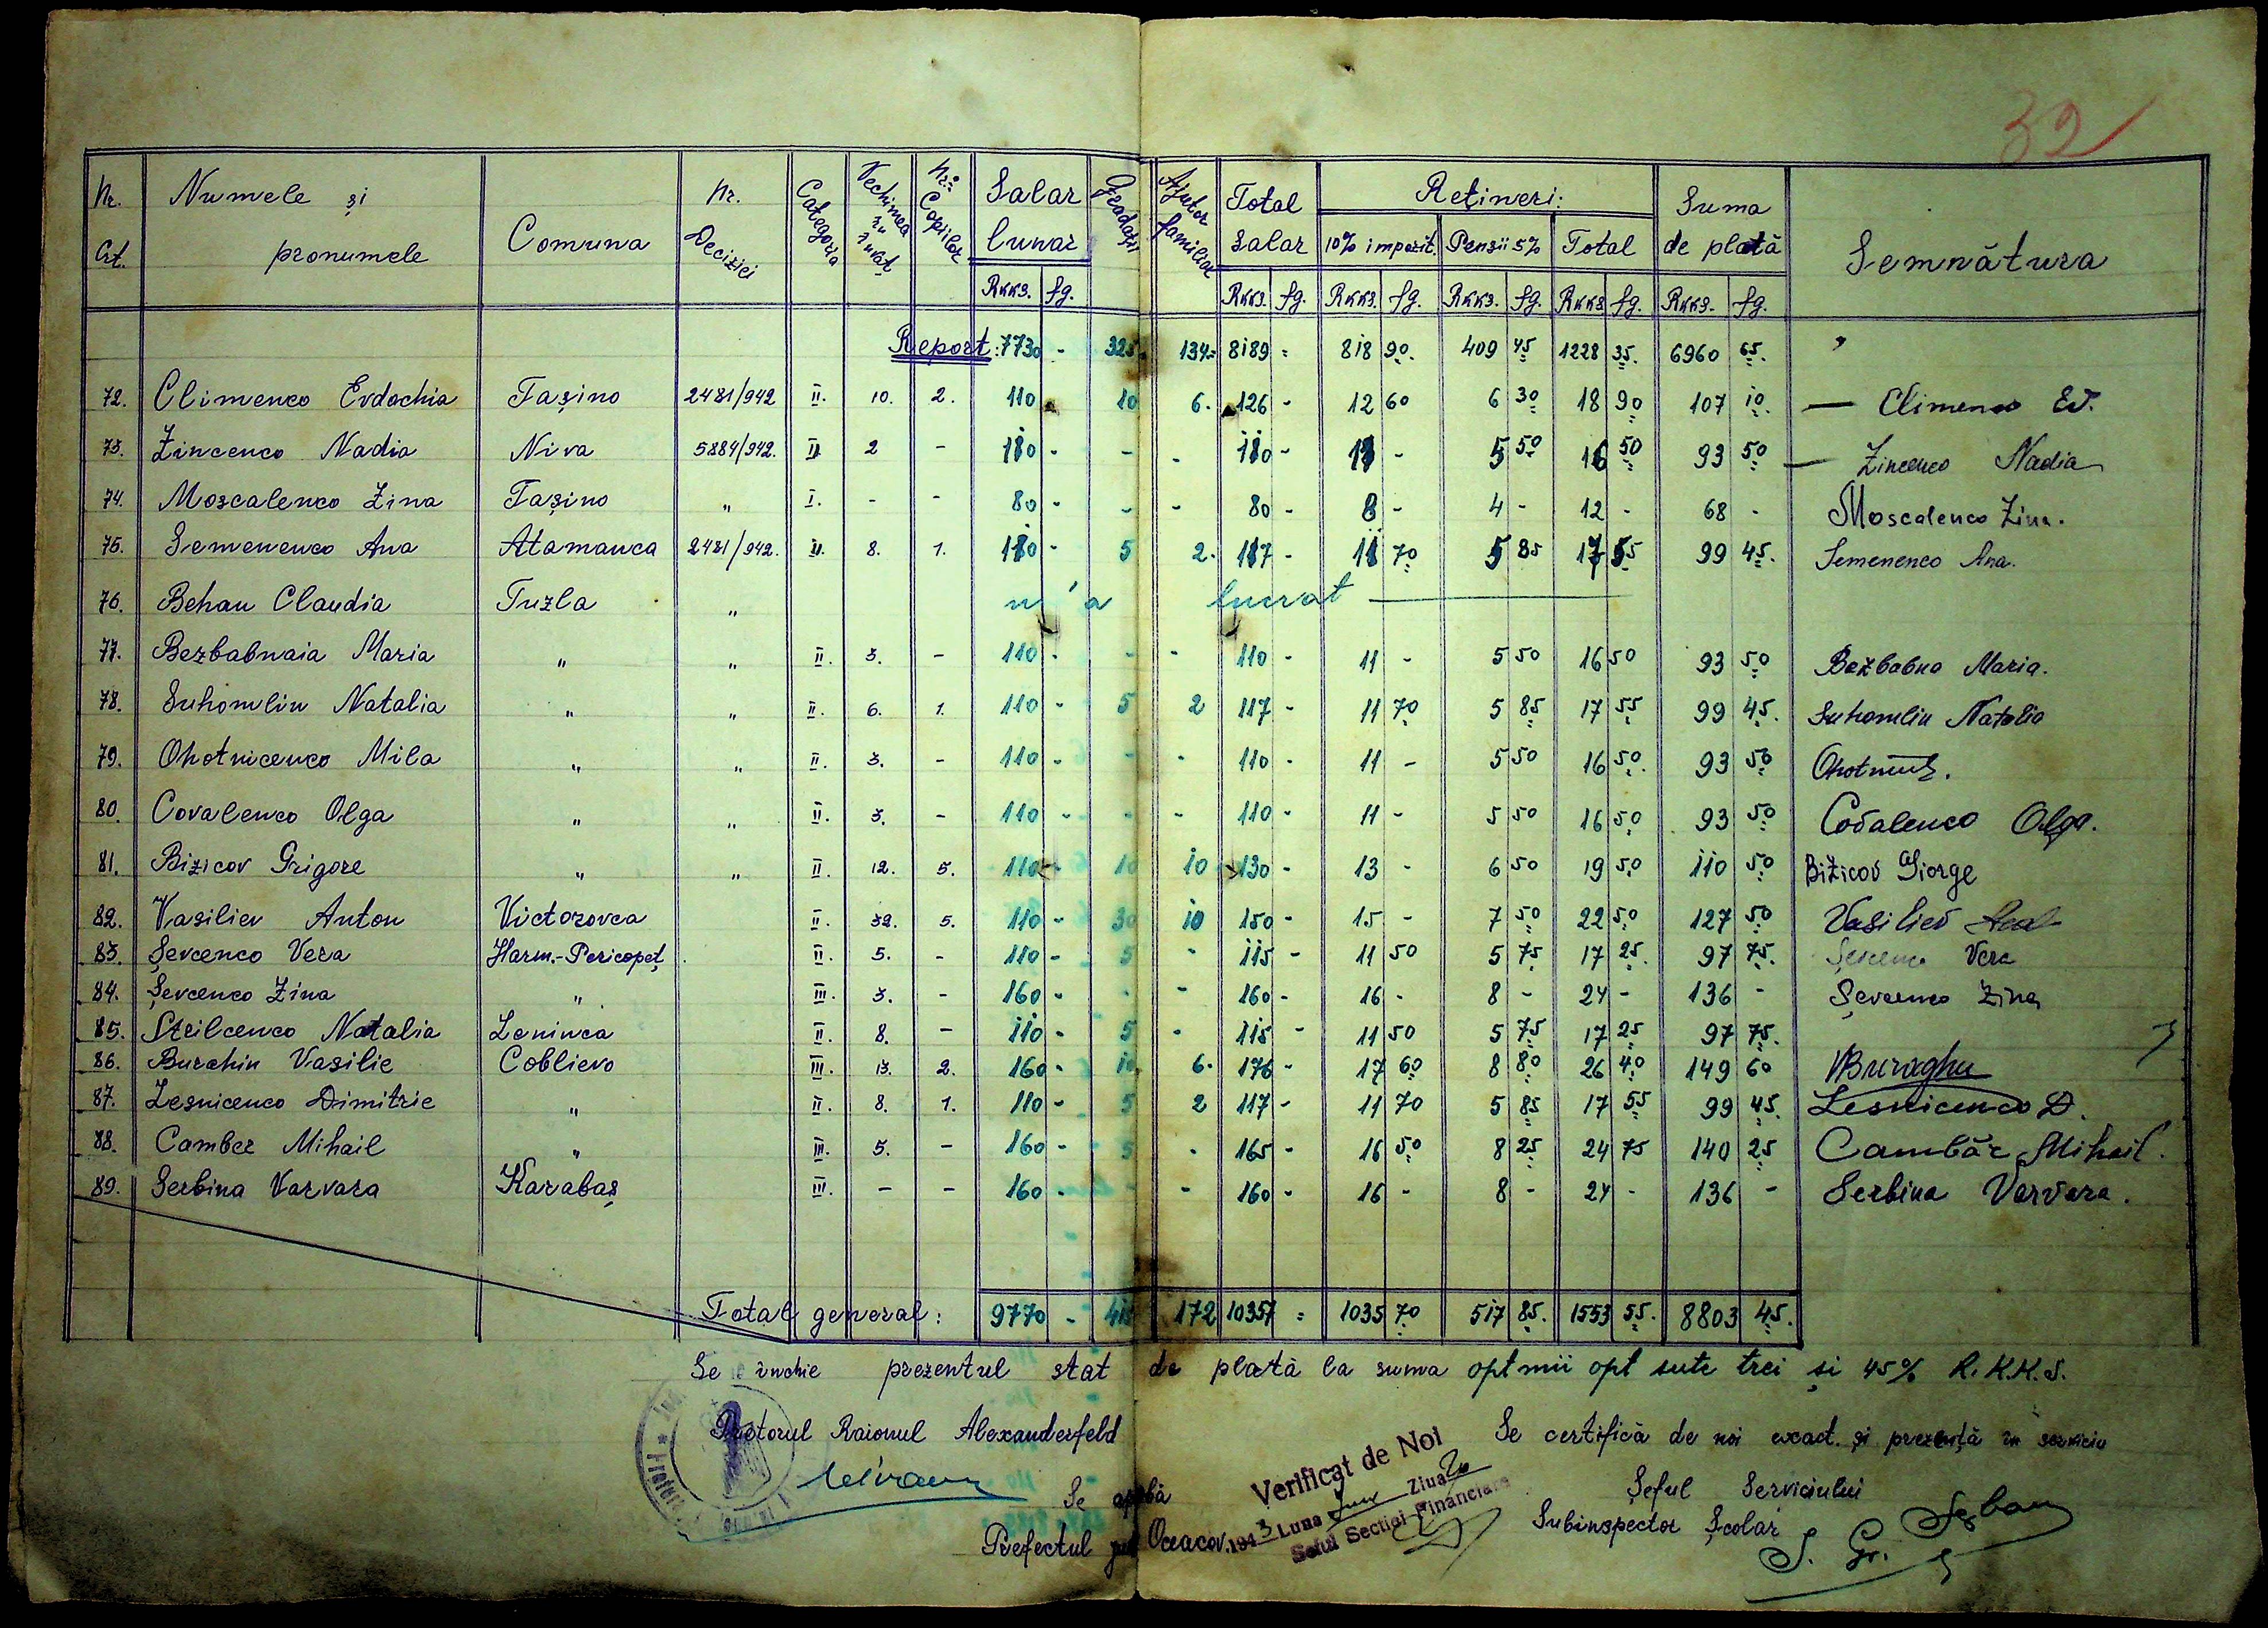 32
Nr. Crt. Numele și pronumele Comuna Nr. Deciziei Categoria Vechimea în învăț Nr. Copiilor Salar lunar Gradații Ajutor familiar Total Salar Rețineri: Suma de plată Semnătura
10% impozit. Pensii 5% Total
Rkks. fg. Rkks. fg. Rkks. fg. Rkks. fg. Rkks fg. Rkks. fg.
Report: 7730 - 325 134= 8189 = 818 90. 409 45 1228 35. 6960 65.
72. Climenco Evdochia Tașino 2481/942 II. 10. 2. 110 10 6. 126 - 12 60 6 30 18 90 107 10. — Climenco Ev.
73. Zincenco Nadia Niva 5884/942. II 2 - 110 - - - 110 - 11 - 5 50 16 50 93 50 — Zincenco Nadia
74. Moscalenco Zina Tașino " I. - - 80 - - - 80 - 8 - 4 - 12 - 68 - Moscalenco Zina.
75. Semenenco Ana Atamanca 2481/942. II. 8. 1. 110 - 5 2. 117 - 11 70 5 85 17 55 99 45. Semenenco Ana.
76. Behau Claudia Tuzla " n'a lucrat —
77. Bezbabnaia Maria " " II. 3. - 110 - - - 110 - 11 - 5 50 16 50 93 50 Bezbabna Maria.
78. Suhomlin Natalia " " II. 6. 1. 110 - 5 2 117 - 11 70 5 85 17 55 99 45. Suhomlin Natalia
79. Ohotnicenco Mila " " II. 3. - 110 - - - 110 - 11 - 5 50 16 50. 93 50
80. Covalenco Olga " " II. 3. - 110 - - - 110 - 11 - 5 50 16 50 93 50 Covalenco Olga.
81. Bizicov Grigore " " II. 12. 5. 110 - 10 10 130 - 13 - 6 50 19 50 110 50 Bizicov Giorge
82. Vasiliev Anton Victorovca II. 32. 5. 110 - 30 10 150 - 15 - 7 50 22 50 127 50 Vasiliev
83. Șevcenco Vera Harm.-Pericopeț II. 5. - 110 - 5 - 115 - 11 50 5 75 17 25. 97 75. Șevcenco Vera
84. Șevcenco Zina " III. 3. - 160 - - - 160 - 16 - 8 - 24 - 136 - Șevcenco Zina
85. Strilcenco Natalia Leninca II. 8. - 110 - 5 - 115 - 11 50 5 75 17 25 97 75.
86. Burchin Vasilie Coblievo III. 13. 2. 160 - 10 6. 176 - 17 60 8 80 26 40 149 60
87. Lesnicenco Dimitrie " II. 8. 1. 110 - 5 2 117 - 11 70 5 85 17 55 99 45. Lesnicenco D.
88. Camber Mihail " III. 5. - 160 - 5 - 165 - 16 50 8 25 24 75 140 25 Cambăr Mihail.
89. Serbina Varvara Karabaș III. - - 160 - - - 160 - 16 - 8 - 24 - 136 - Serbina Varvara.
Total general: 9770 - 415 172 10357 = 1035 70 517 85. 1553 55. 8803 45.
Se închie prezentul stat de plată la suma opt mii opt sute trei și 45% R.K.K.S.
Pretorul Raionul Alexanderfeld
Se certifică de noi exact. și prezență în serviciu
Verificat de Noi
1943 Luna Ziua 20
Șeful Secției Financiare
Șeful Serviciului
Subinspector Școlar
Se aprobă
Prefectul jud. Oceacov.
S. Gr. Șerban